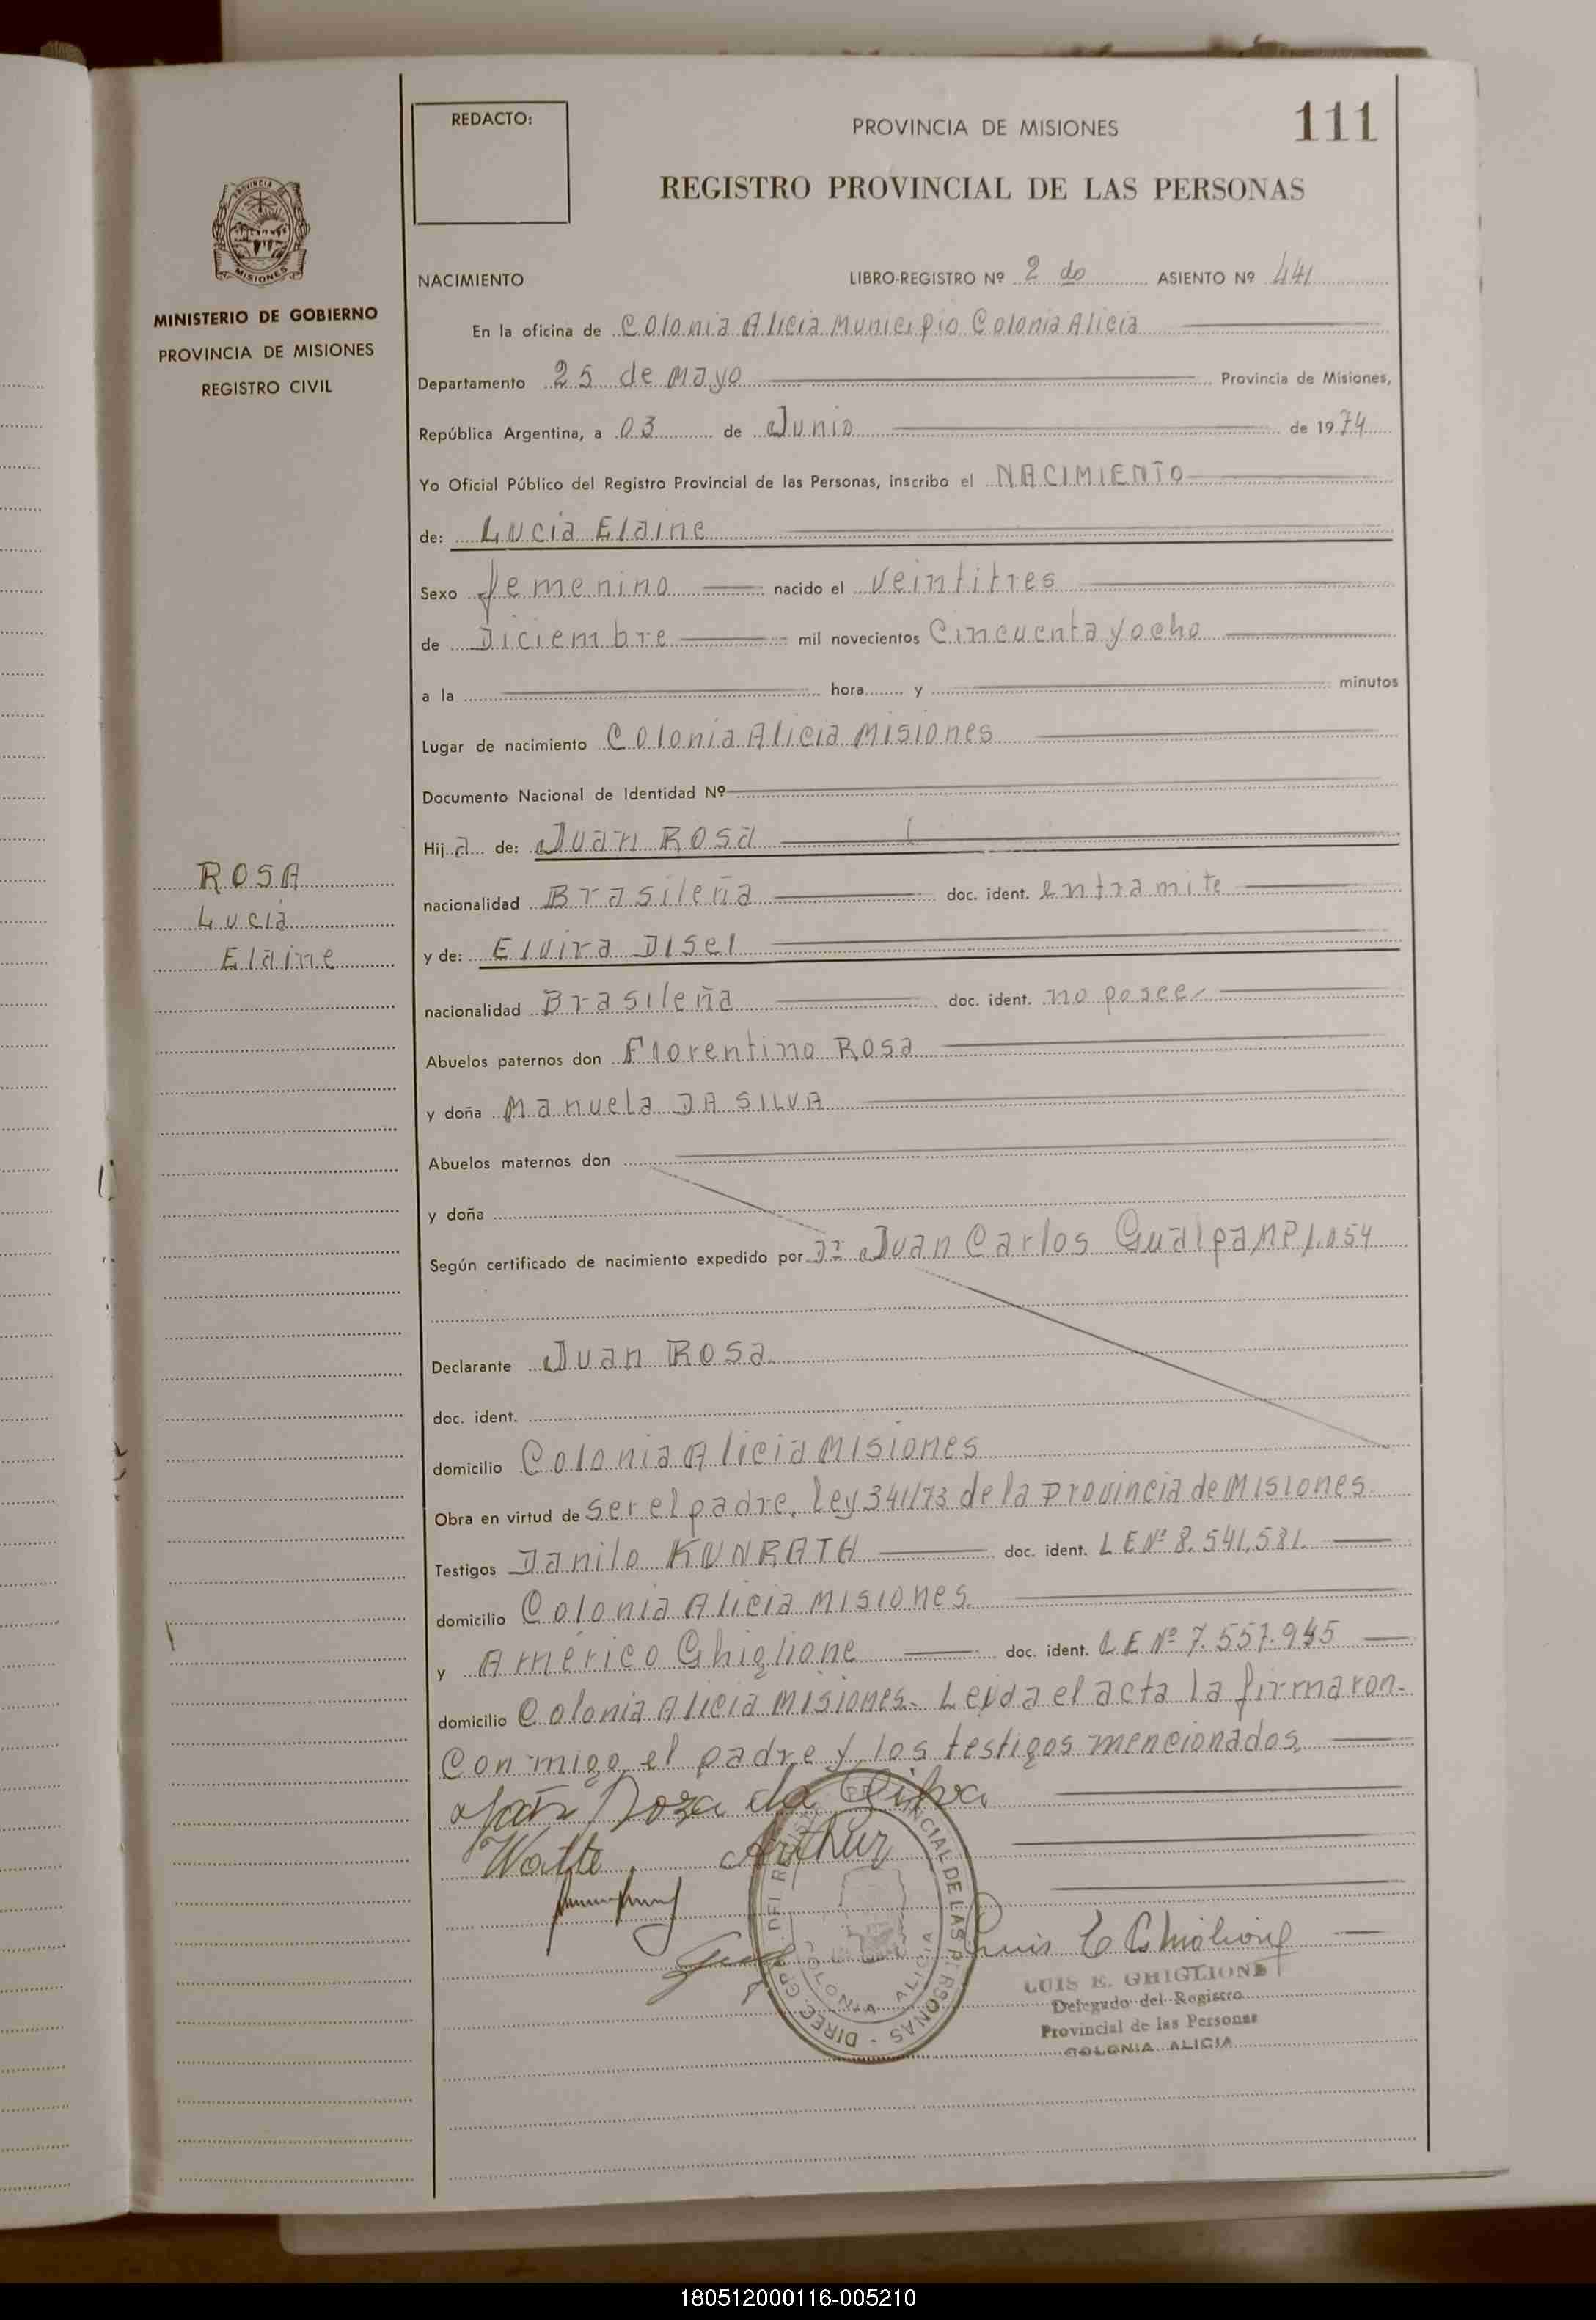 REDACTO:
PROVINCIA DE MISIONES
111
REGISTRO PROVINCIAL DE LAS PERSONAS
PROVINCIA DE
MISIONES
MINISTERIO DE GOBIERNO
PROVINCIA DE MISIONES
REGISTRO CIVIL
NACIMIENTO LIBRO-REGISTRO Nº 2 do ASIENTO Nº 441
En la oficina de Colonia Alicia Municipio Colonia Alicia
Departamento 25 de Mayo Provincia de Misiones,
República Argentina, a 03 de Junio de 1974
Yo Oficial Público del Registro Provincial de las Personas, inscribo el NACIMIENTO
de: Lucia Elaine
Sexo femenino nacido el veintitres
de Diciembre mil novecientos Cincuenta y ocho
a la hora y minutos
Lugar de nacimiento Colonia Alicia Misiones
Documento Nacional de Identidad Nº
Hija de: Juan Rosa
ROSA
Lucia
Elaine
nacionalidad Brasileña doc. ident. en tramite
y de: Elvira Disel
nacionalidad Brasileña doc. ident. no posee
Abuelos paternos don Florentino Rosa
y doña Manuela DA SILVA
Abuelos maternos don
y doña
Según certificado de nacimiento expedido por Dr Juan Carlos Gualpa MP 1.054
Declarante Juan Rosa
doc. ident.
domicilio Colonia Alicia Misiones
Obra en virtud de ser el padre. Ley 341/73 de la Provincia de Misiones
Testigos Danilo KUNRATH doc. ident. L E Nº 8.541.581.
domicilio Colonia Alicia Misiones.
y Américo Ghiglione doc. ident. L E Nº 7.557.945
domicilio Colonia Alicia Misiones. Leida el acta la firmaron
Conmigo el padre y los testigos mencionados
Roza da Silva
Arthur
Luis E Ghiglione
LUIS E. GHIGLIONE
Delegado del Registro
Provincial de las Personas
COLONIA ALICIA
COLONIA ALICIA
180512000116-005210